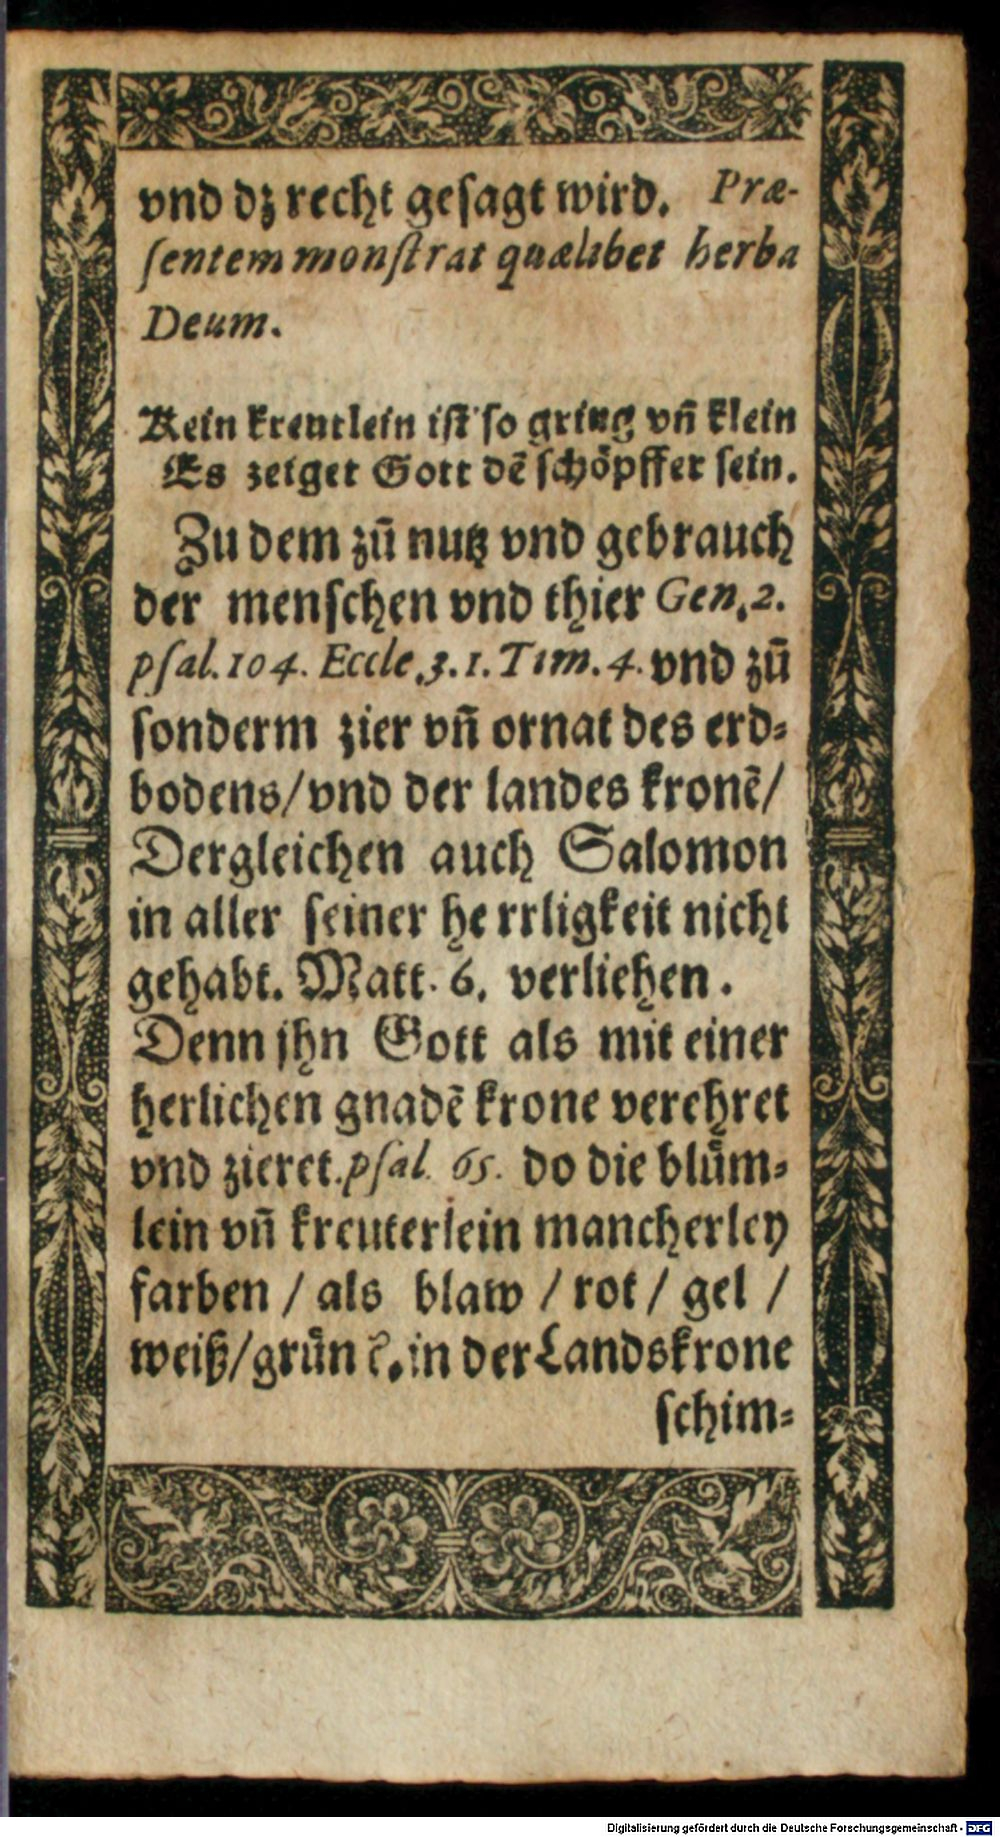 vnd dz recht gesagt wird. Præ-
sentem monstrat quælibet herba
Deum.
Kein kreutlein ist so gring vñ klein
Es zeiget Gott dẽ schöpffer sein.
Zu dem zũ nutz vnd gebrauch
der menschen vnd thier Gen. 2.
psal. 104. Eccle. 3. 1. Tim. 4. vnd zũ
sonderm zier vñ ornat des erd-
bodens/vnd der landes kronẽ/
Dergleichen auch Salomon
in aller seiner he rrligkeit nicht
gehabt. Matt. 6. verliehen.
Denn jhn Gott als mit einer
herlichen gnadẽ krone verehret
vnd zieret. psal. 65. do die blům-
lein vñ kreuterlein mancherley
farben / als blaw / rot / gel /
weiß/grůn ꝛc. in der Landskrone
schim-
Digitalisierung gefördert durch die Deutsche Forschungsgemeinschaft - DFG